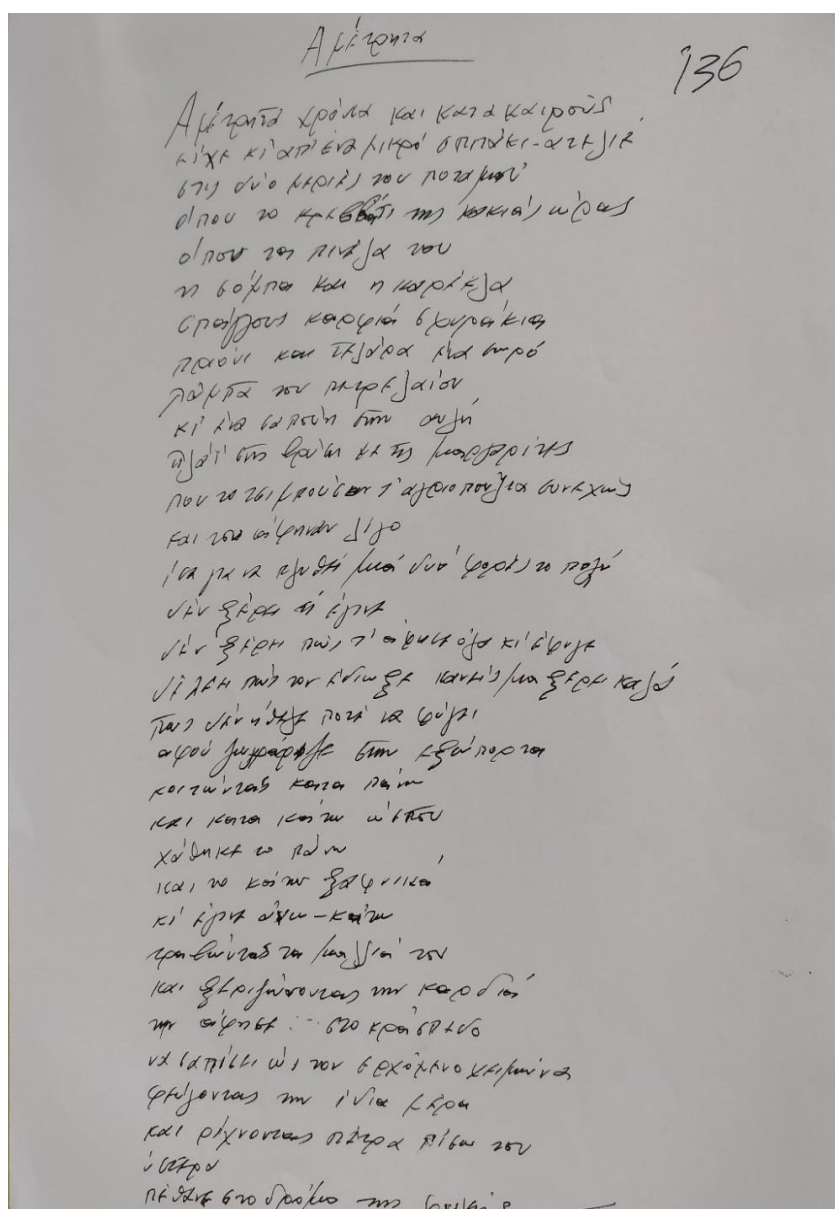 Αμέτρητα
136
Αμέτρητα χρόνια και κατά καιρούς
είχε κι από ένα μικρό σπιτάκι-ατελιέ
στις δύο μεριές του ποταμού
όπου το κρεββάτι της κακιάς ώρας
όπου τα πινέλα του
η σόμπα και η καρέκλα
σπάγγους καρφιά σχοινάκια
πριόνι και τελάρα ένα σωρό
λάμπα του πετρελαίου
κι ένα σαπούνι στην αυλή
πλάι στη βρύση με τις μαργαρίτες
που το τσιμπούσαν τ' αγριοπούλια συνεχώς
και του άφηναν λίγο
ίσα για να πλυθεί μιά δυό φορές το πολύ
δέν ξέρει τί έγινε
δέν ξέρει πώς τ' άφησε όλα κι έφυγε
δέ λέει πώς τον έδιωξε κανείς μα ξέρει καλά
πως δέν ήθελε ποτέ να φύγει
αφού ζωγράφιζε στην εξώπορτα
κοιτώντας κατά πάνω
και κατά κάτω ώσπου
χάθηκε το πάνω
και το κάτω ξαφνικά
κι έγινε άνω-κάτω
τραβώντας τα μαλλιά του
και ξεριζώνοντας την καρδιά
την άφησε στο κράσπεδο
να σαπίσει ώς τον ερχόμενο χειμώνα
φεύγοντας την ίδια μέρα
και ρίχνοντας πέτρα πίσω του
ύστερα
πέθανε στο δρόμο της